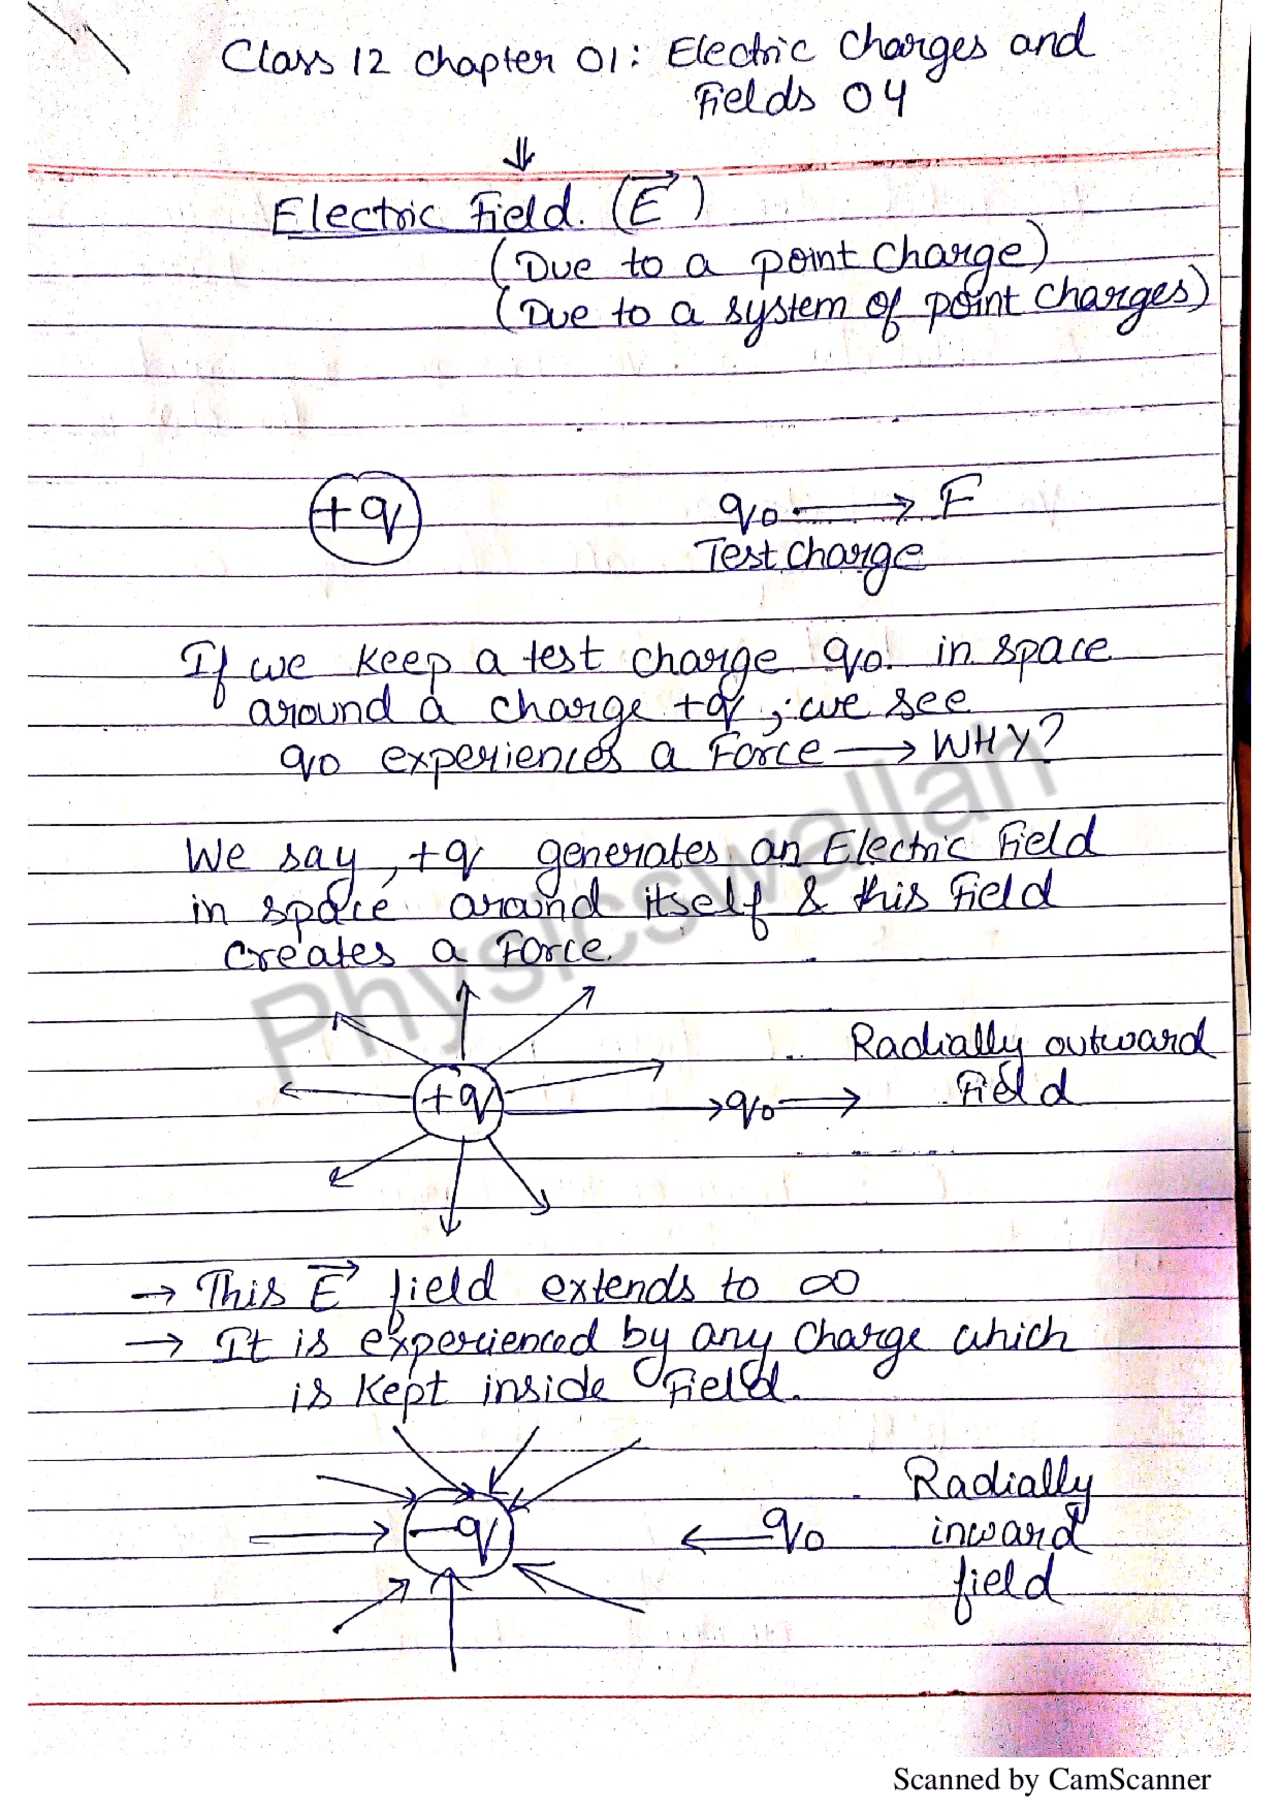 Class 12 chapter 01: Electric Charges and
Fields 04
⇓
Electric Field. (E→)
(Due to a point charge)
(Due to a system of point charges)
+q
q0 → F
Test charge
If we keep a test charge q0 in space
around a charge +q, we see
q0 experiences a Force → WHY?
We say, +q generates an Electric Field
in space around itself & this Field
creates a Force.
Physicswallah
Radially outward
Field
+q
q0 →
→ This E→ field extends to ∞
→ It is experienced by any charge which
is kept inside Field.
Radially
inward
field
-q
← q0
Scanned by CamScanner